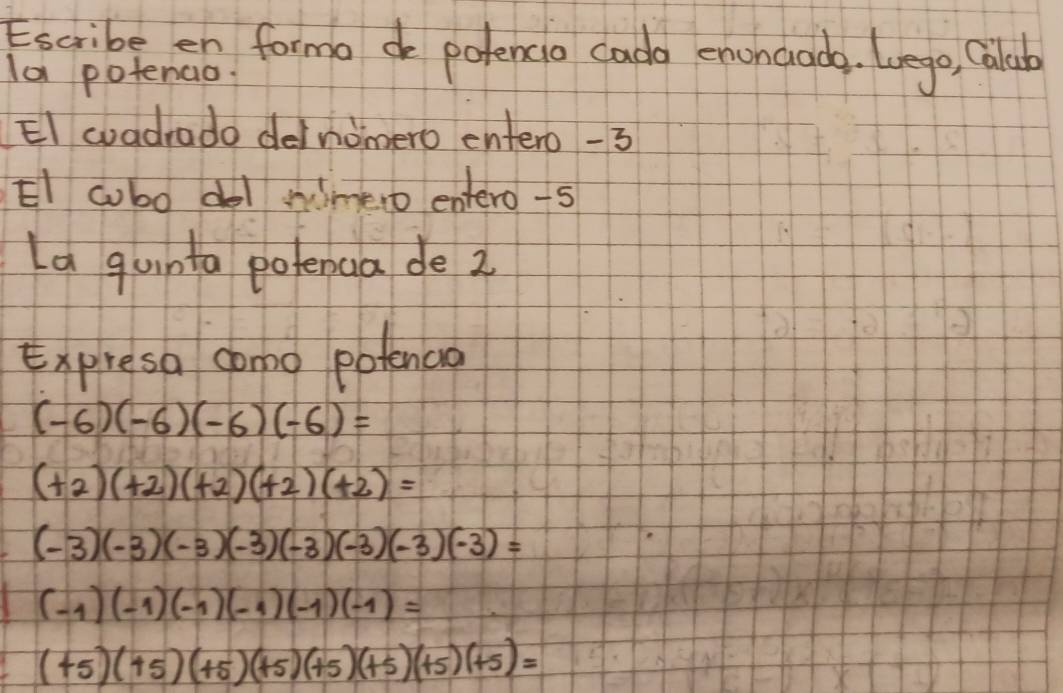 Escribe en forma de potencia cada enunciado. Luego, Cálcub
la potencia.
El cuadrado del nómero entero -3
El cubo del número entero -5
La quinta potencia de 2
Expresa como potencia
(-6)(-6)(-6)(-6)=
(+2)(+2)(+2)(+2)(+2)=
(-3)(-3)(-3)(-3)(-3)(-3)(-3)(-3)=
(-1)(-1)(-1)(-1)(-1)(-1)=
(+5)(+5)(+5)(+5)(+5)(+5)(+5)(+5)=